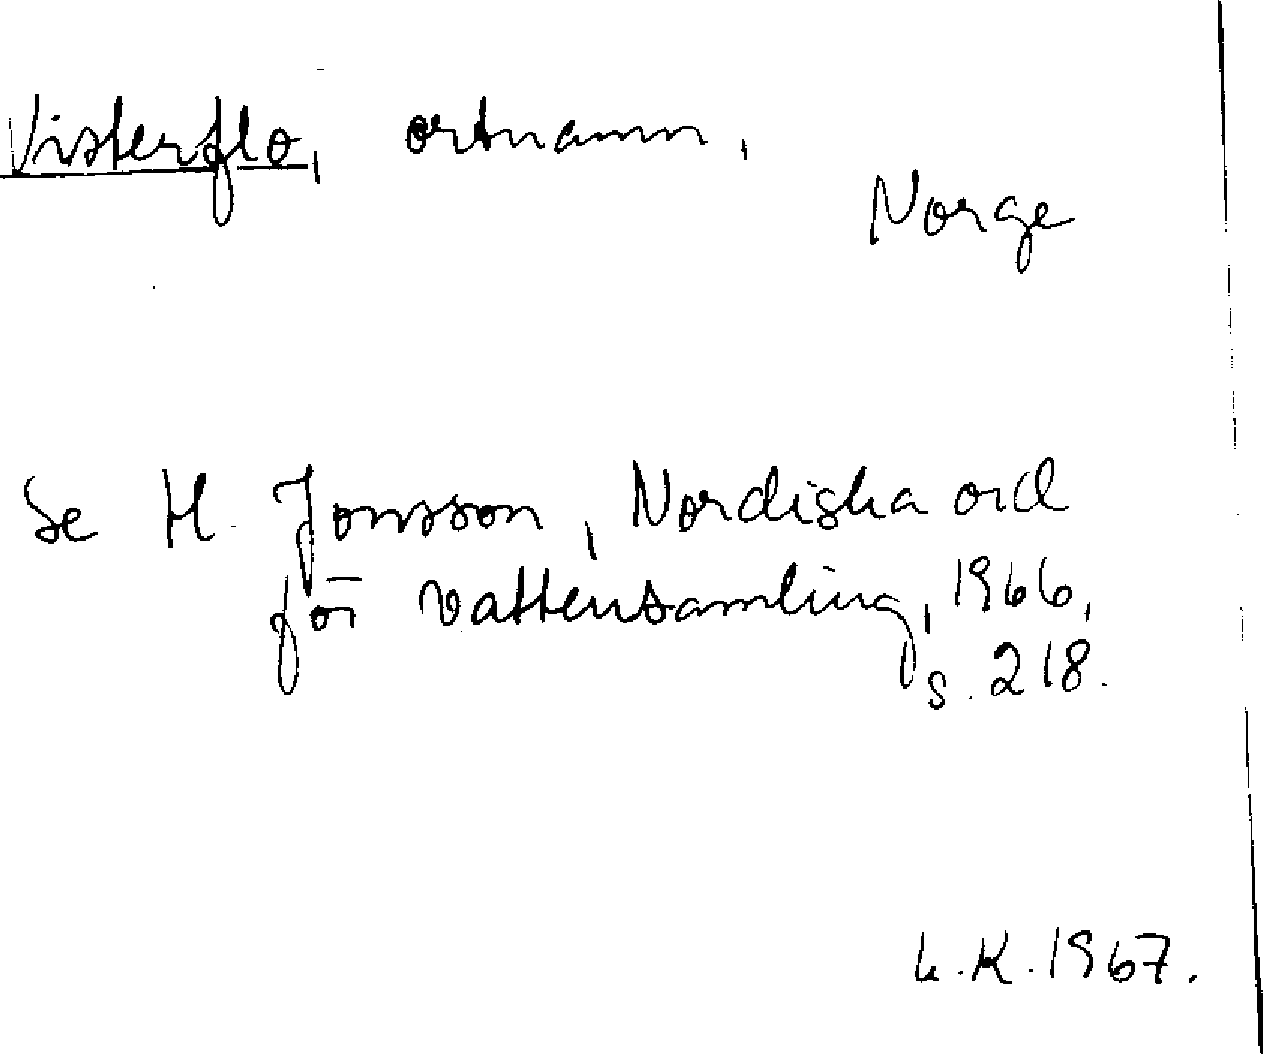 Visterflo, ortnamn,
Norge
Se H. Jonsson, Nordiska ord
för vattensamling, 1966,
s. 218.
L.K. 1967.